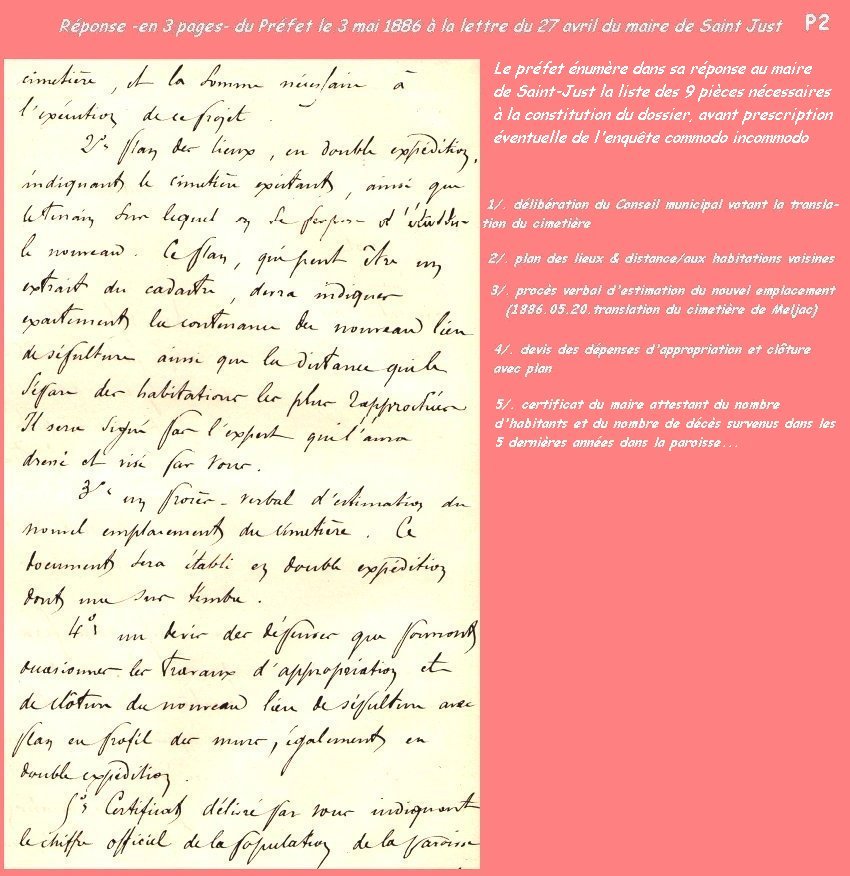 Réponse -en 3 pages- du Préfet le 3 mai 1886 à la lettre du 27 avril du maire de Saint Just P2
cimetière, et la somme nécessaire à
l'exécution de ce projet.
2º, plan des lieux, en double expédition,
indiquant le cimetière existant, ainsi que
le terrain sur lequel on se propose d'établir
le nouveau. Ce plan, qui peut être un
extrait du cadastre, devra indiquer
exactement la contenance du nouveau lieu
de sépulture ainsi que la distance qui le
sépare des habitations les plus rapprochées
Il sera signé par l'expert qui l'aura
dressé et visé par vous.
3º, un procès-verbal d'estimation du
nouvel emplacement du cimetière. Ce
document sera établi en double expédition
dont une sur timbre.
4º, un devis des dépenses que pourront
occasionner les travaux d'appropriation et
de clôture du nouveau lieu de sépulture avec
plan en profil des murs, également en
double expédition.
5º, Certificat délivré par vous indiquant
le chiffre officiel de la population de la paroisse
Le préfet énumère dans sa réponse au maire
de Saint-Just la liste des 9 pièces nécessaires
à la constitution du dossier, avant prescription
éventuelle de l'enquête commodo incommodo
1/. délibération du Conseil municipal votant la transla-
tion du cimetière
2/. plan des lieux & distance/aux habitations voisines
3/. procès verbal d'estimation du nouvel emplacement
(1886.05.20.translation du cimetière de Meljac)
4/. devis des dépenses d'appropriation et clôture
avec plan
5/. certificat du maire attestant du nombre
d'habitants et du nombre de décés survenus dans les
5 dernières années dans la paroisse...